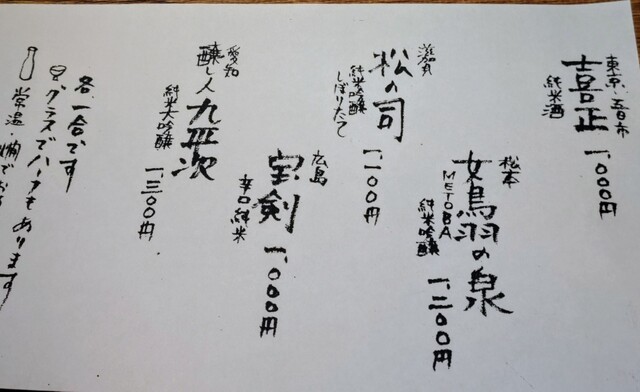 東京・五日市
喜正
純米酒
一、〇〇〇円
松本
女鳥羽の泉
METOBA
純米吟醸
一、二〇〇円
滋賀
松の司
純米吟醸
しぼりたて
一、一〇〇円
広島
宝剣
辛口純米
一、〇〇〇円
愛知
醸し人九平次
純米大吟醸
一、三〇〇円
各、一合です
グラスでハーフもあります
常温・燗で